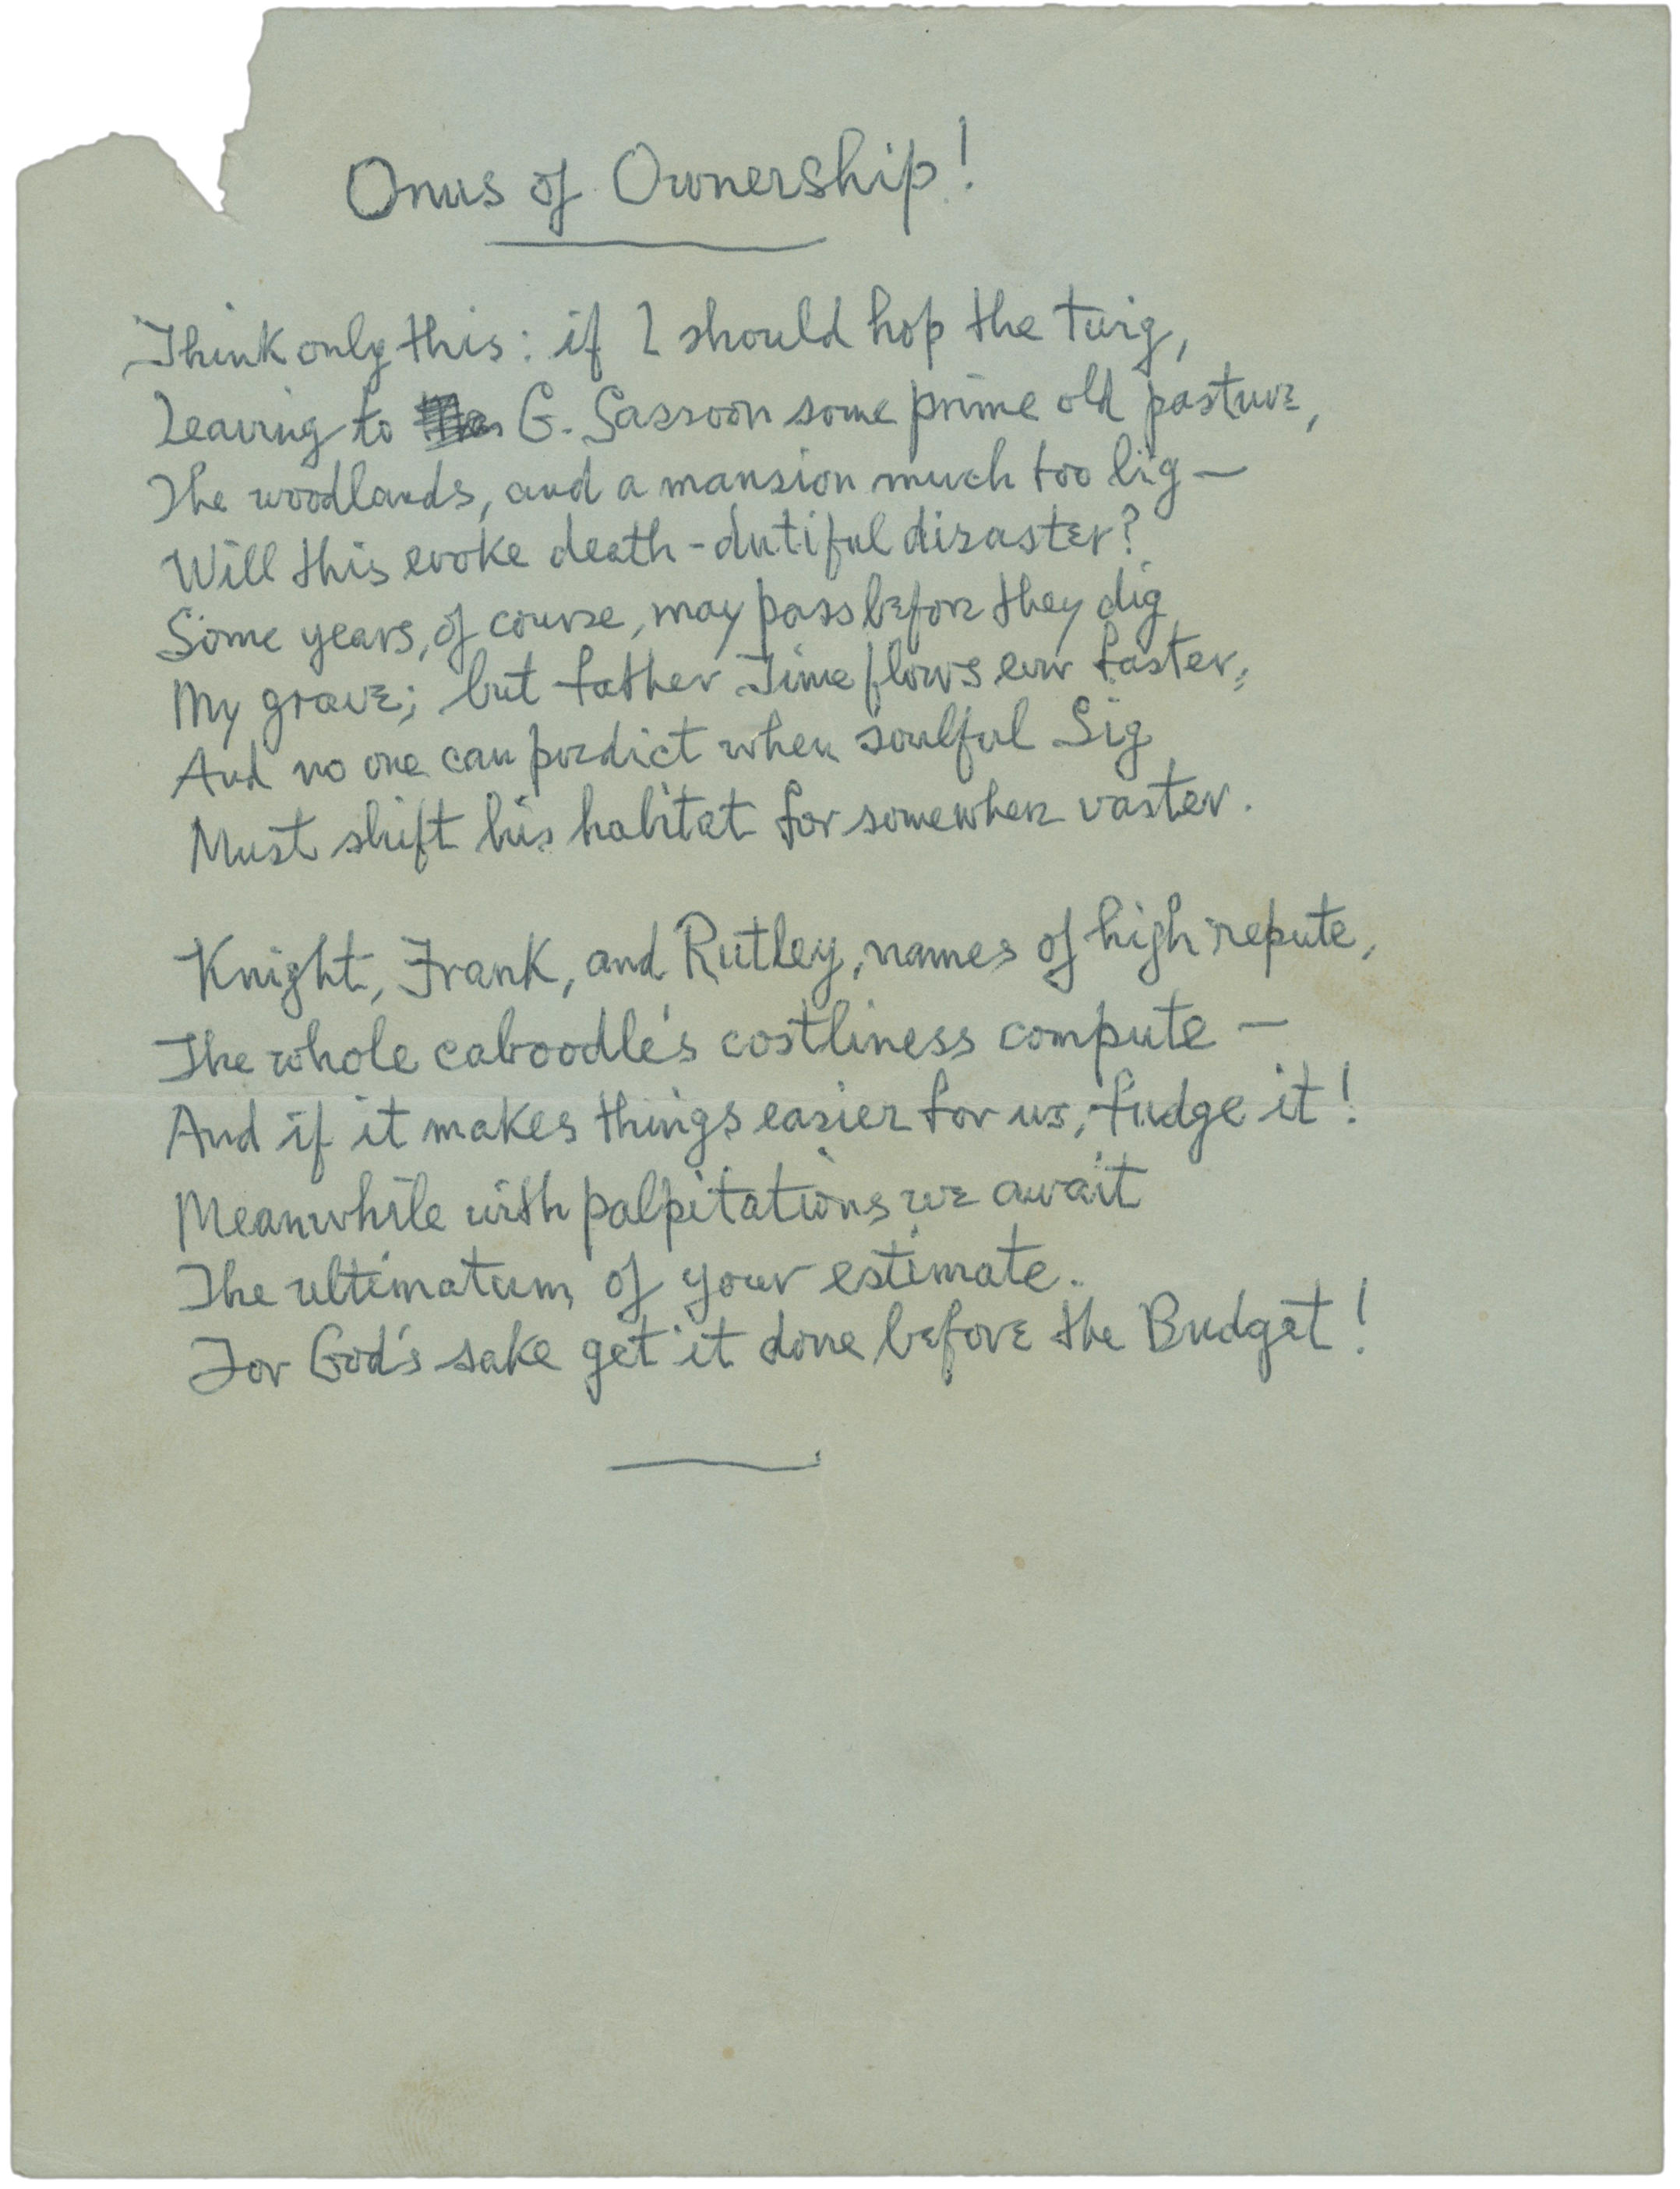 Onus of Ownership!
Think only this: if I should hop the twig,
Leaving to G. Sassoon some prime old pasture,
The woodlands, and a mansion much too big —
Will this evoke death-dutiful disaster?
Some years, of course, may pass before they dig
My grave; but father Time flows ever faster,
And no one can predict when soulful Sig
Must shift his habitat for somewhere vaster.
Knight, Frank, and Rutley, names of high repute,
The whole caboodle's costliness compute —
And if it makes things easier for us, fudge it!
Meanwhile with palpitations we await
The ultimatum of your estimate.
For God's sake get it done before the Budget!